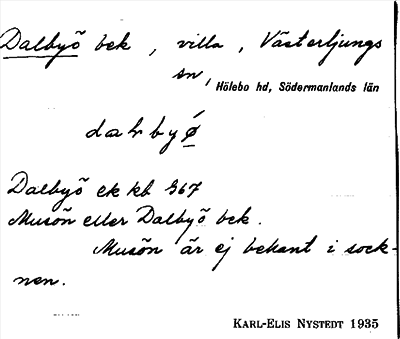 Dalbyö bek, villa, Västerljungs
sn, Hölebo hd, Södermanlands län
Dalbyö ek kb 367
Musön eller Dalbyö bek.
Musön är ej bekant i sock-
nen.
KARL-ELIS NYSTEDT 1935